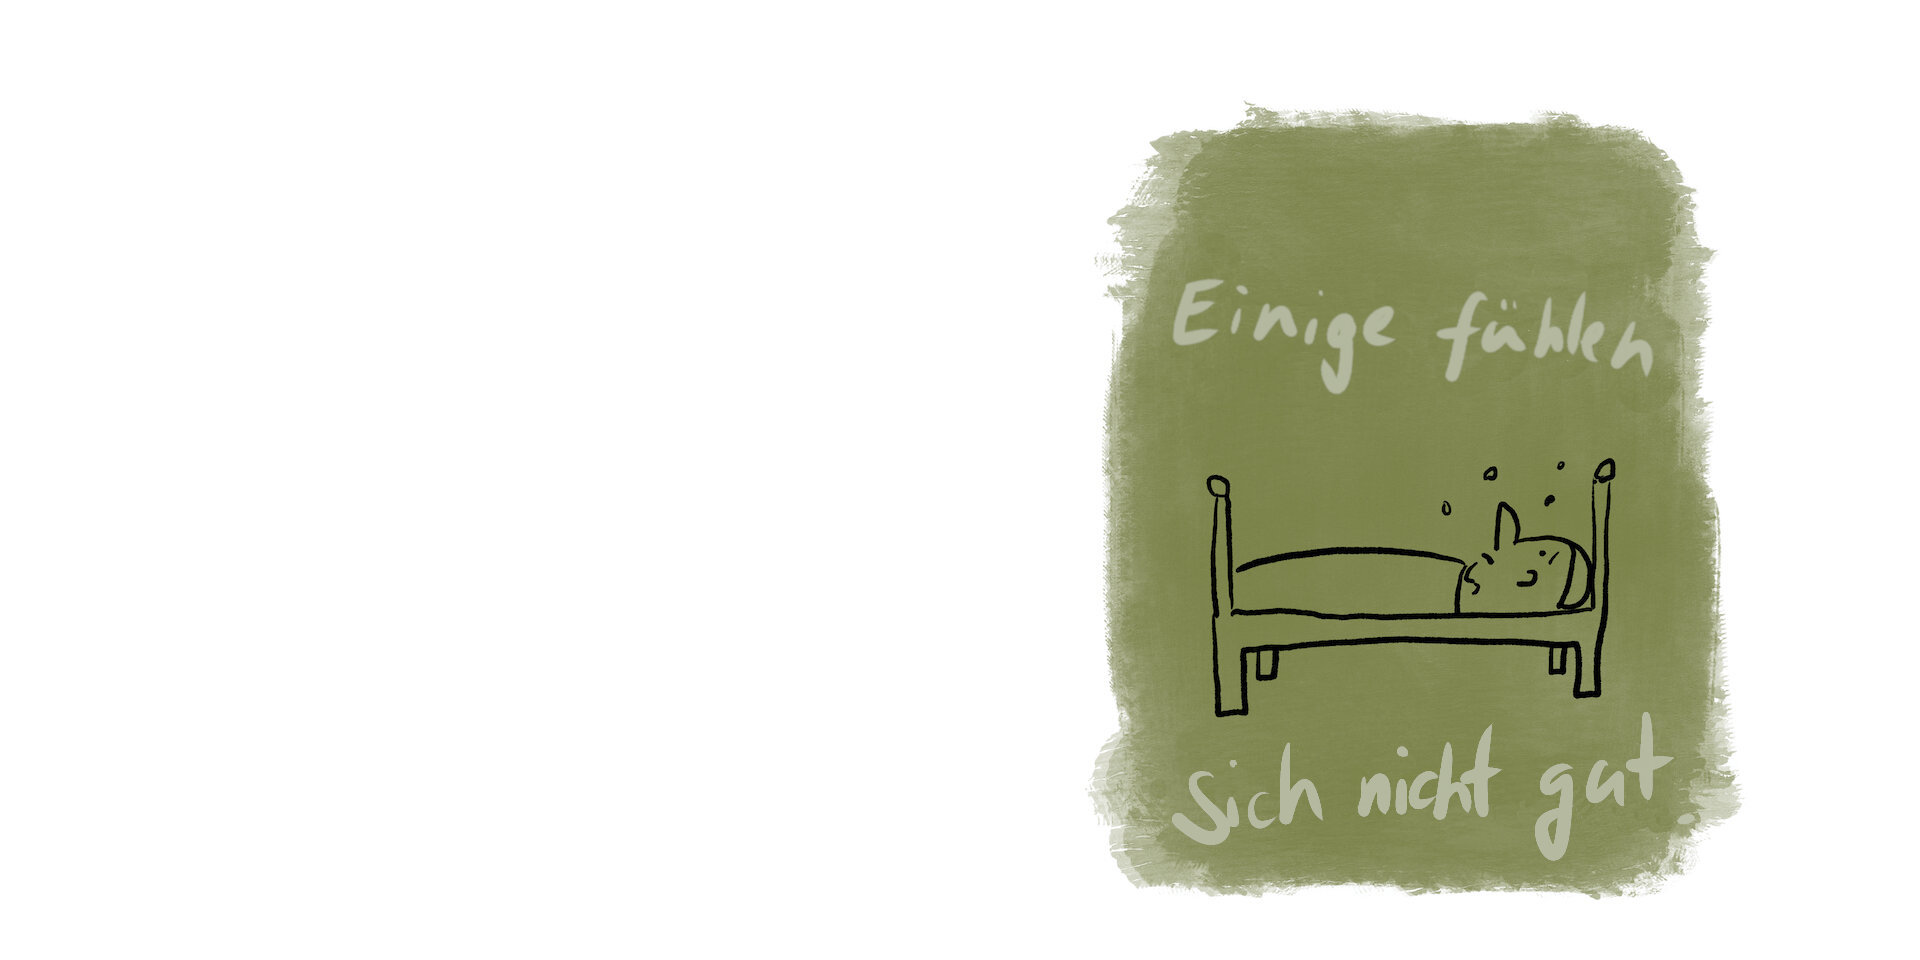 Einige fühlen
sich nicht gut.